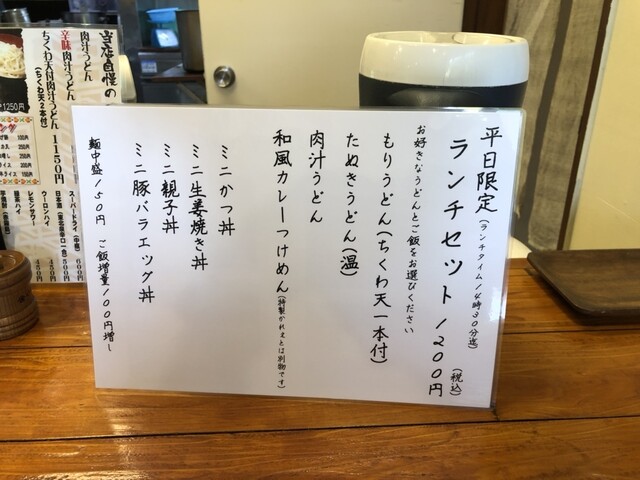 平日限定(ランチタイム14時30分迄)
ランチセット 1200円(税込)
お好きなうどんとご飯をお選びください
もりうどん(ちくわ天一本付)
たぬきうどん(温)
肉汁うどん
和風カレーつけめん(特製かれえとは別物です)
ミニかつ丼
ミニ生姜焼き丼
ミニ親子丼
ミニ豚バラエッグ丼
麺中盛150円 ご飯増量100円増し
当店自慢の
肉汁うどん
辛味肉汁うどん
ちくわ天付肉汁うどん 1150円
(ちくわ天2本付)
1250円
スーパードライ(中瓶) 600
日本酒
ウーロンハイ 450
緑茶ハイ
レモンサワー 450